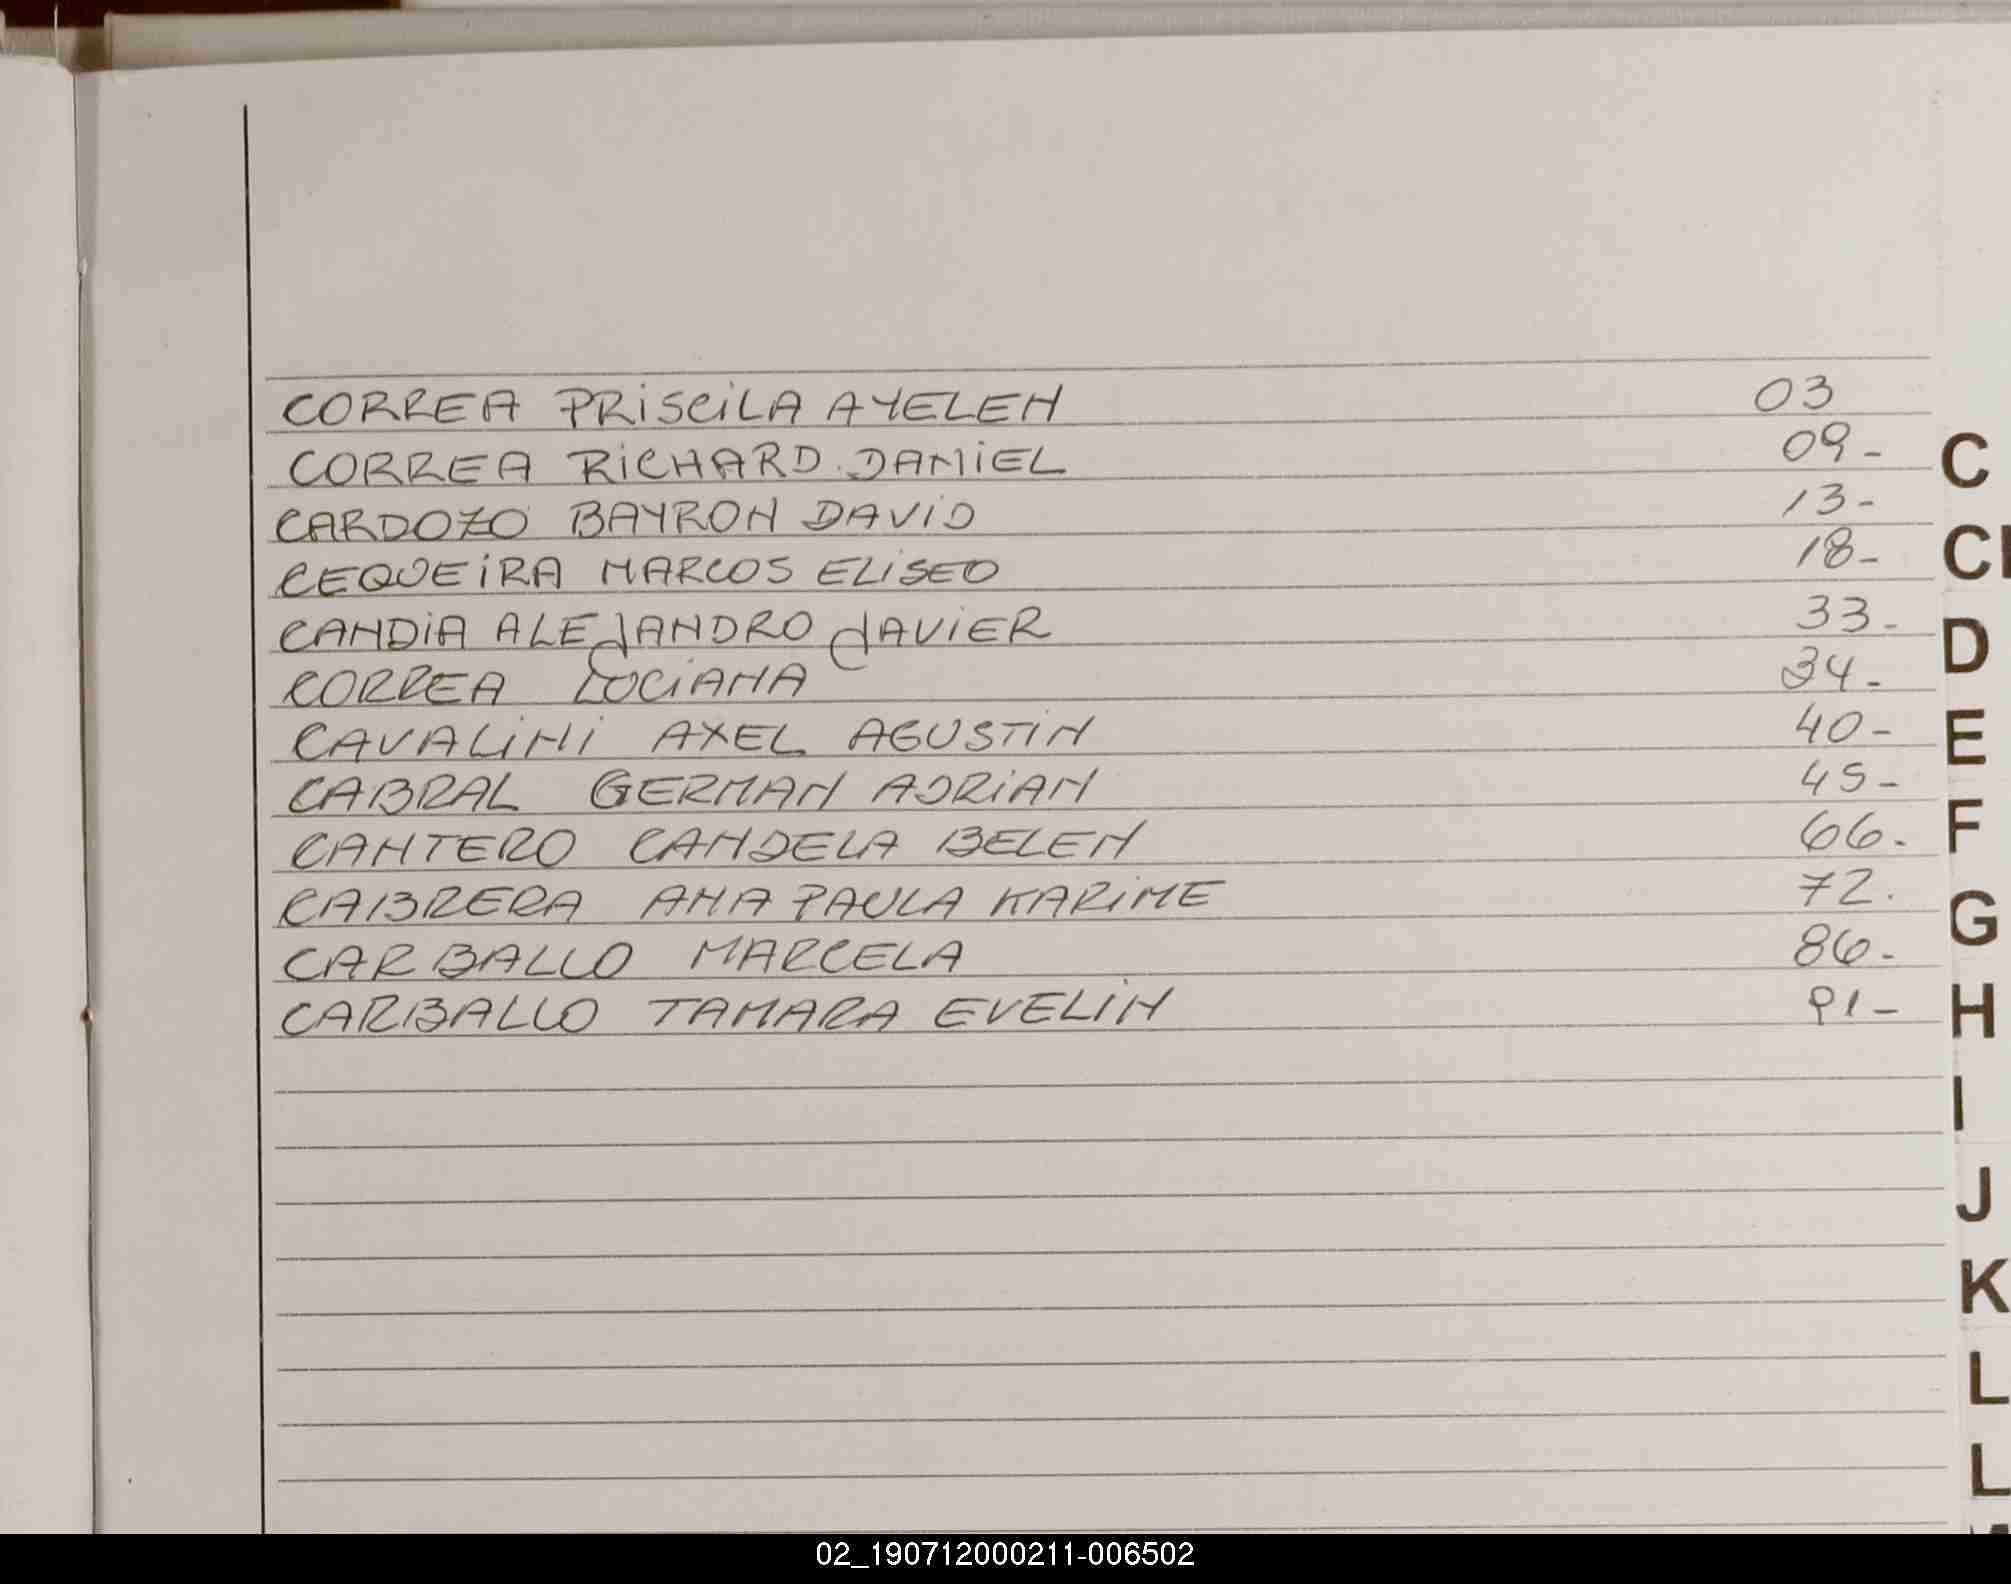 CORREA PRISCILA AYELEN 03
CORREA RICHARD DANIEL 09-
CARDOZO BAYRON DAVID 13-
CEQUEIRA MARCOS ELISEO 18-
CANDIA ALEJANDRO JAVIER 33-
CORREA LUCIANA 34-
CAVALINI AXEL AGUSTIN 40-
CABRAL GERMAN ADRIAN 45-
CANTERO CANDELA BELEN 66-
CABRERA ANA PAULA KARIME 72.
CARBALLO MARCELA 86-
CARBALLO TAMARA EVELIN 91-
C
D
E
F
G
H
I
J
K
L
02_190712000211-006502